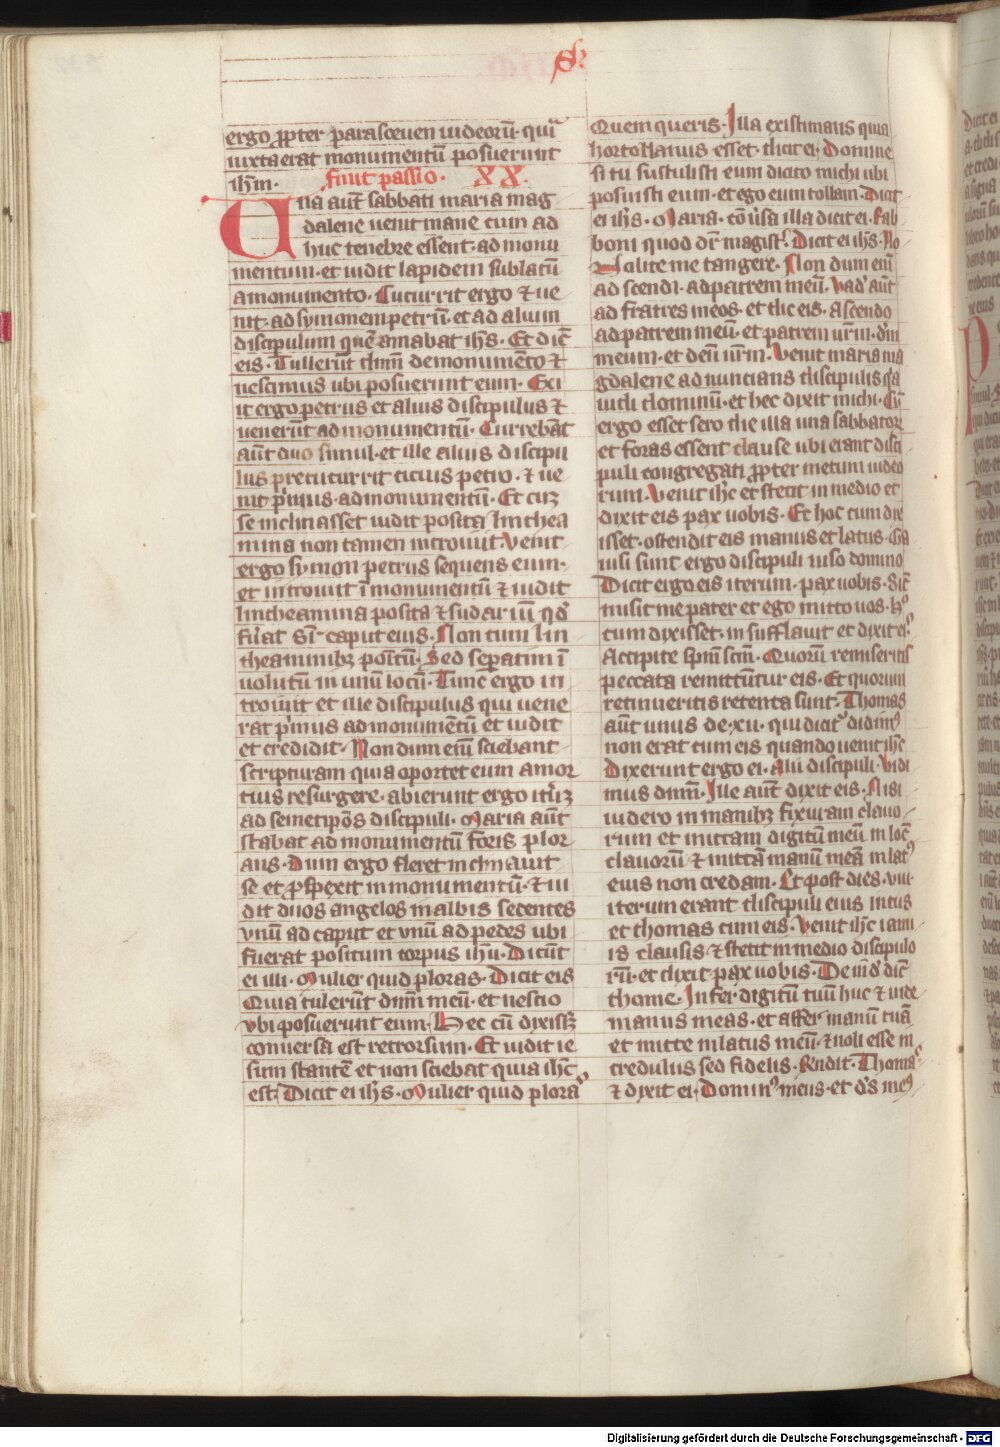 S.
ergo ꝓpter parasceuen iudeorū· quia
iuxta erat monumentū posuerunt
ihm̄. finit passio. XX.
Una aut̄ sabbati maria mag
dalene uenit mane cum ad
huc tenebre essent· ad monu
mentum· et uidit lapidem sublatū
a monumento· Cucurrit ergo ⁊ ue
nit· ad symonem petrū· et ad alium
discipulum quē amabat ihs̄· Et dic̄
eis· Tullerūt dnm̄ de monumēto ⁊
nescimus ubi posuerunt eum· Exi
it ergo petrus et alius discipulus ⁊
uenerūt ad monumentū· Currebāt
aūt duo simul· et ille alius discipu
lus precucurrit cicius petro· ⁊ ue
nit p̄mus· ad monumentū· Et cuꝫ
se inclinasset uidit posita linthea
mina non tamen introiuit· Venit
ergo symon petrus sequens eum·
et introiuit ī monumentū ⁊ uidit
lintheamina posita ⁊ sudariū qd̄
fu̅at sr̄ caput eius· Non cum lin
theaminibꝫ poītū· Sed separatim ī
uolutū in unū locū· Tunc ergo in
troiuit et ille discipulus qui uene
rat p̄mus ad monumētū et uidit
et credidit· Non dum enī sciebant
scripturam quia oportet eum a mor
tuis resurgere· abierunt ergo iteꝝ
ad semetipōs discipuli· Maria aūt
stabat ad monumentū foris plor
ans· Dum ergo fleret inclinauit
se et ꝓspexit in monumentū· ⁊ ui
dit duos angelos in albis sedentes
vnū ad caput et vnū ad pedes ubi
fuerat positum corpus ihū· Dicūt
ei illi· Mulier quid ploras· Dicit eis
Quia tulerūt dnm̄ meū· et nescio
vbi posuerunt eum· Hec cū dixiss;
conuersa est retrorsum· Et uidit ie
sum stantē et non sciebat quia ihc̄
est· Dicit ei ihs̄· Mulier quid ploras
Quem queris· Illa existimans quia
hortollanus esset· dicit ei· Domine
si tu sustulisti eum dicito michi ubi
posuisti eum· et ego eum tollam· Dicit
ei ihs̄· Maria· cōu̅sa illa dicit ei· Rab
boni quod dr̄ magist̄· Dicit ei ihs̄· No
Nolite me tangere· Non dum enī
ascendi· ad patrem meū· vad̄ aūt
ad fratres meos· et dic eis· Ascendo
ad patrem meū· et patrem ur̄m· dm̄
meum· et deū ur̄m· Venit maria ma
gdalene adnuncians discipulis q̄a
uidi dominū· et hec dixit michi· Cū
ergo esset sero die illa una sabbatoꝝ
et fores essent clause ubi erant disci
puli congregati ꝓpter metum iudeo
rum· Venit ihc̄ et stetit in medio et
dixit eis pax uobis· Et hoc cum dix
isset· ostendit eis manus et latus· Ga
uisi sunt ergo discipuli uiso domino
Dicit ergo eis iterum· pax uobis· Sic̄
misit me pater et ego mitto uos· H̊
cum dixisset· insufflauit et dixit eis
Accipite spm̄ scm̄· Quorū remiseritis
peccata remittūtur eis· Et quorum
retinueritis retenta sunt· Thomas
aūt unus de·xii· qui dicit̄ didim⁹
non erat cum eis quando uenit ihc̄
Dixerunt ergo ei· alii discipuli· Vidi
mus dnm̄· Ille aūt dixit eis· Nisi
uidero in manibꝫ fixuram clauo
rum et mittam digitū meū in locū
clauorū ⁊ mittā manū meā in lat⁹
eius non credam· Et post dies·viii·
iterum erant discipuli eius intus
et thomas cum eis· Venit ihc̄ ianu
is clausis· ⁊ stetit in medio discipulo
rū· et dixit pax uobis· Deind̄ dic̄
thome· Infer digitū tuū huc ⁊ uide
manus meas· et affer manū tuā
et mitte in latus meū· ⁊ noli esse in
credulus sed fidelis· R̄ndit· Thomas
⁊ dixit ei· Domin⁹ meus· et ds̄ me⁹
Digitalisierung gefördert durch die Deutsche Forschungsgemeinschaft - DFG